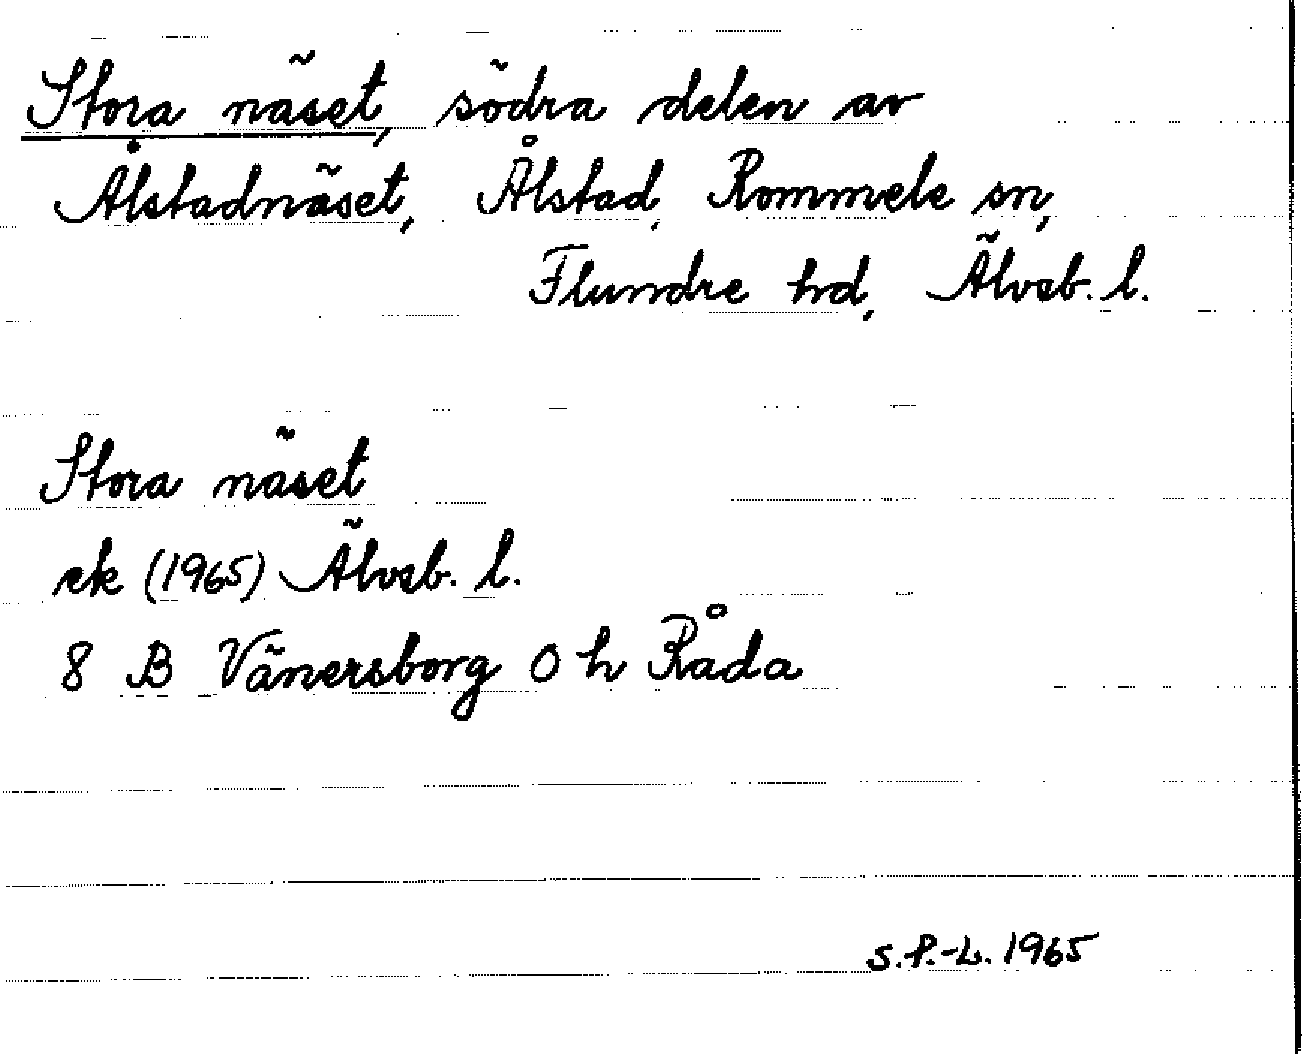 Stora näset, södra delen av
Ålstadnäset, Ålstad, Rommele sn,
Flundre hd, Älvsb. l.
Stora näset
ek (1965) Älvsb. l.
8 B Vänersborg 0 h Råda
S.P.-L. 1965